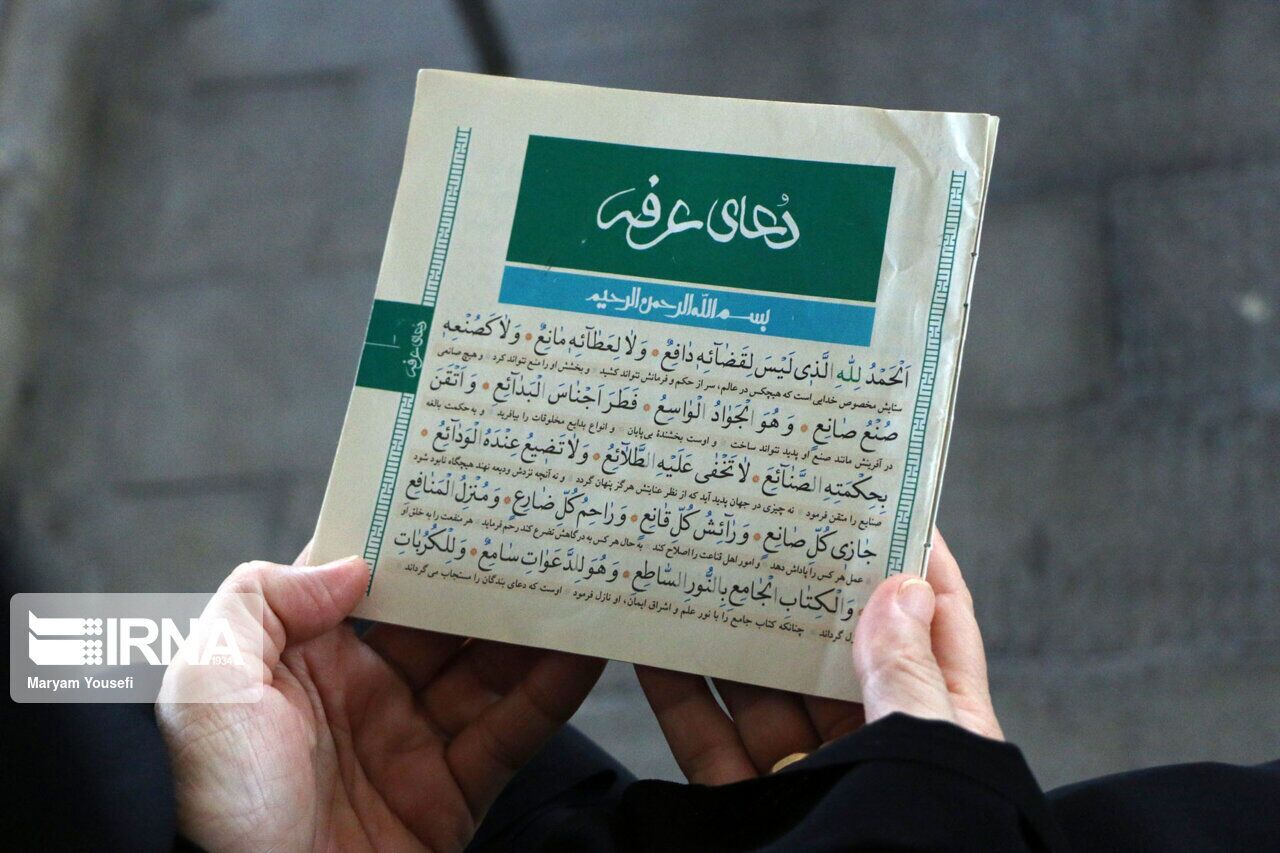 دُعای عرفه
بسم الله الرحمن الرحیم
اَلْحَمْدُ لِلّٰهِ الَّذي لَيْسَ لِقَضآئِهِ دافِعٌ * وَلا لِعَطآئِهِ مانِعٌ * وَلا كَصُنْعِهِ
ستایش مخصوص خدایی است که هیچکس در عالم، سر از حکم و فرمانش نتواند کشید * و بخشش او را منع نتواند کرد * و هیچ صانعی
صُنْعُ صانِعٍ * وَهُوَ الْجَوادُ الْواسِعُ * فَطَرَ اَجْناسَ الْبَدآئِعِ * وَاَتْقَنَ
در آفرینش مانند صنع او پدید نتواند ساخت * و اوست بخشندهٔ بی‌پایان * و انواع بدایع مخلوقات را بیافرید * و به حکمت بالغه
بِحِكْمَتِهِ الصَّنآئِعَ * لا تَخْفى عَلَيْهِ الطَّلآئِعُ * وَلا تَضيعُ عِنْدَهُ الْوَدآئِعُ *
صنایع را متقن فرمود * نه چیزی در جهان پدید آید که از نظر عنایتش هرگز پنهان گردد * و نه آنچه نزدش ودیعه نهند هیچگاه نابود شود
جازي كُلِّ صانِعٍ * وَرآئِشُ كُلِّ قانِعٍ * وَراحِمُ كُلِّ ضارِعٍ * وَمُنْزِلُ الْمَنافِعِ
عمل هر کس را پاداش دهد * و امور اهل قناعت را اصلاح کند * به حال هر کس به درگاهش تضرع کند رحم فرماید * هر منفعت را به خلق او
* وَالْكِتابِ الْجامِعِ بِالنُّورِ السّاطِعِ * وَهُوَ لِلدَّعَواتِ سامِعٌ * وَلِلْكُرُباتِ
گرداند * چنانکه کتاب جامع را با نور علم و اشراق ایمان، او نازل فرمود * اوست که دعای بندگان را مستجاب می‌گرداند
دعای عرفه
۱
IRNA
1934
Maryam Yousefi